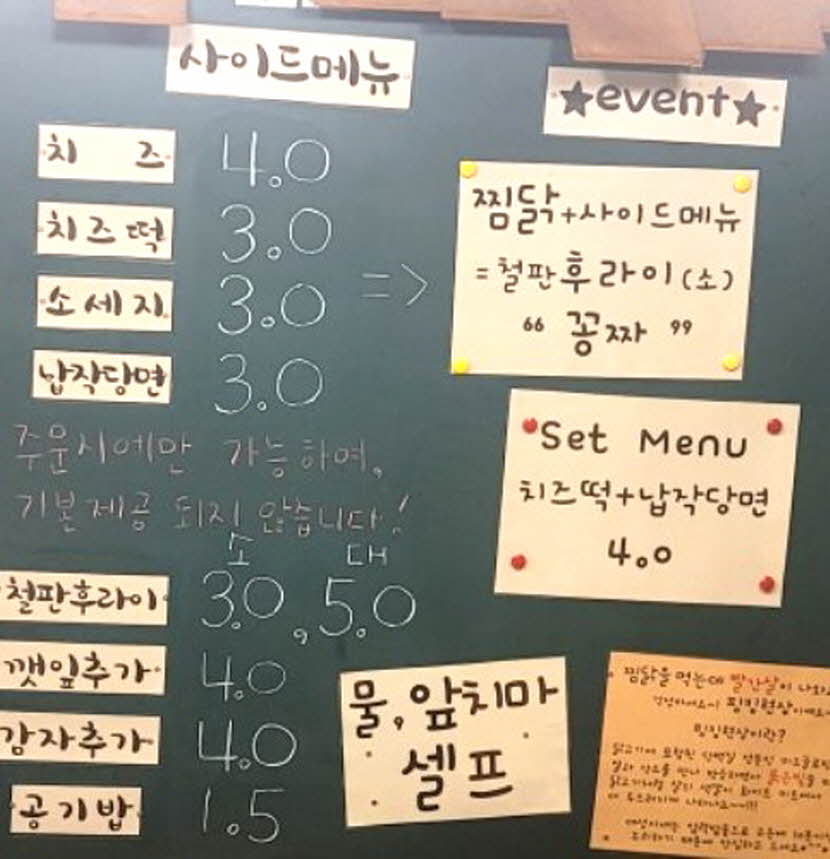 사이드메뉴
치 즈 4.0
치즈떡 3.0
소세지 3.0
납작당면 3.0
=>
주문시에만 가능하며,
기본제공 되지 않습니다!
소 대
철판후라이 3.0, 5.0
깻잎추가 4.0
감자추가 4.0
공기밥 1.5
★event★
찜닭+사이드메뉴
=철판후라이(소)
“ 꽁짜 ”
Set Menu
치즈떡+납작당면
4.0
물,앞치마
셀프
찜닭을 먹는데 빨간살이
핑킹현상
핑킹현상이란?